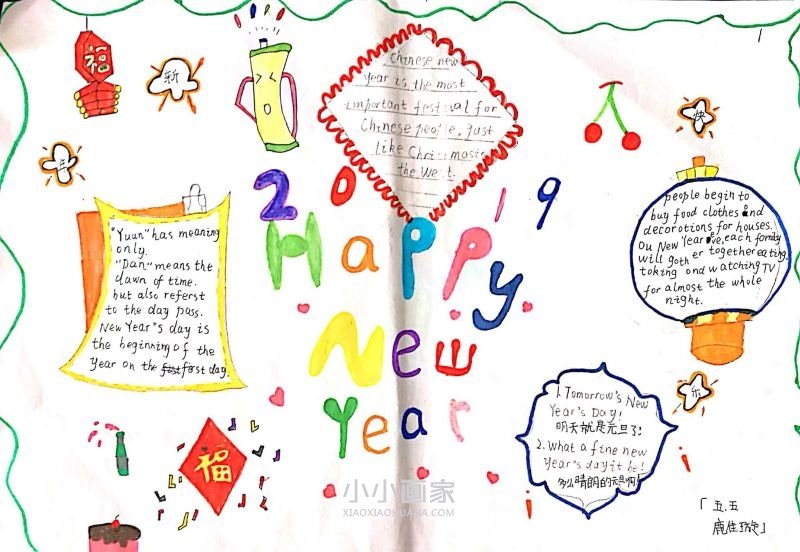 福
新
年
快
乐
Chinese new
year is the most
important festival for
Chinese people, just
like Christmas in
the West.
2019
Happy
New
Year
"Yuan" has meaning
only.
"Dan" means the
dawn of time.
but also referst
to the day pass.
New Year's day is
the beginning of the
Year on the first day.
people begin to
buy food clothes and
decorations for houses.
On New Year eve, each family
will goth er together eating.
toking and watching TV
for almost the whole
night.
1. Tomorrow's New
Year's Day!
明天就是元旦了!
2. What a fine new
year's day it he!
多么晴朗的元旦啊!
福
小小画家
XIAOXIAOHUAJIA.COM
「五.五
」